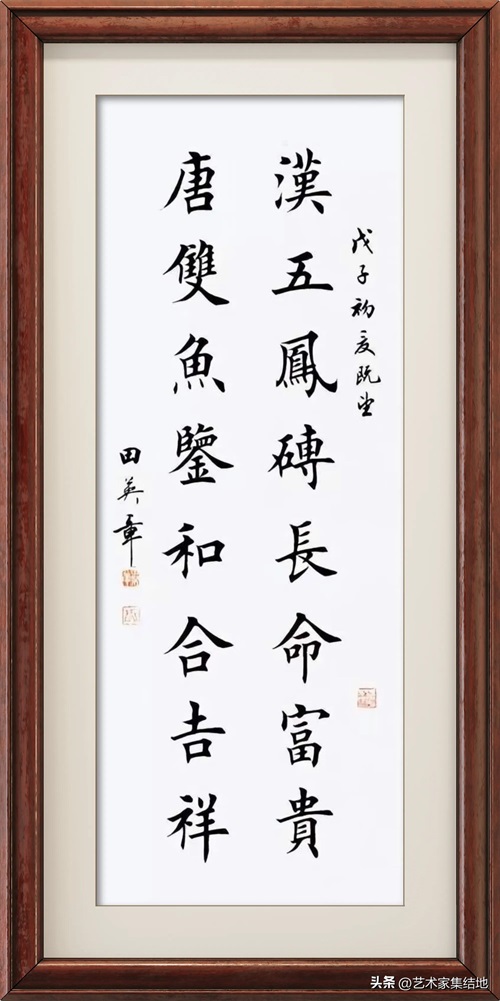 戊子初夏既望
漢五鳳磚長命富貴
唐雙魚鑒和合吉祥
田英章
头条 @艺术家集结地